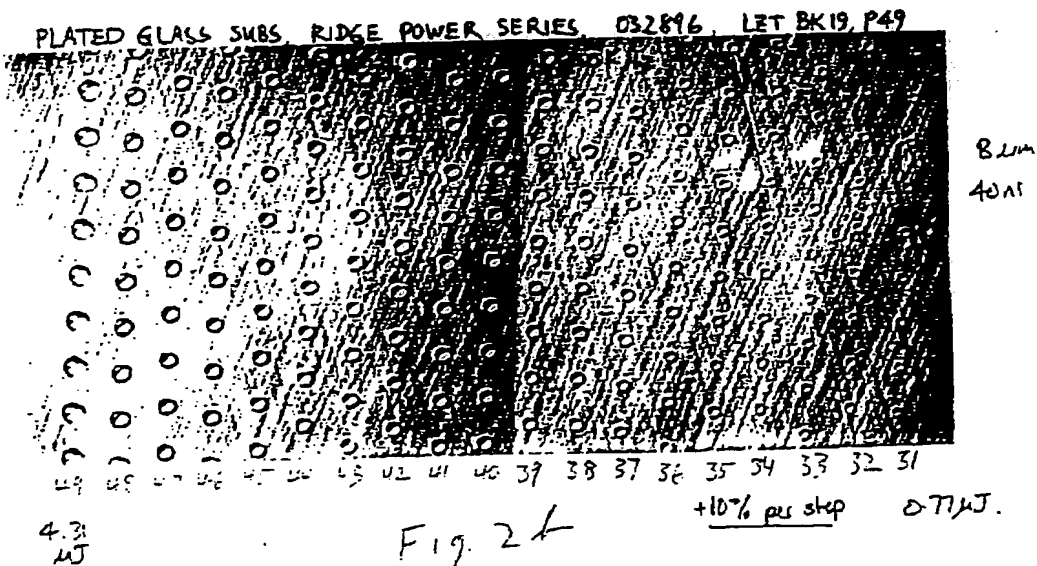 PLATED GLASS SUBS, RIDGE POWER SERIES, 032896, LZT BK19, P49
8um
40ns
49 48 47 46 45 44 43 42 41 40 39 38 37 36 35 34 33 32 31
+10% per step 0.77µJ.
4.31
µJ
Fig. 2b